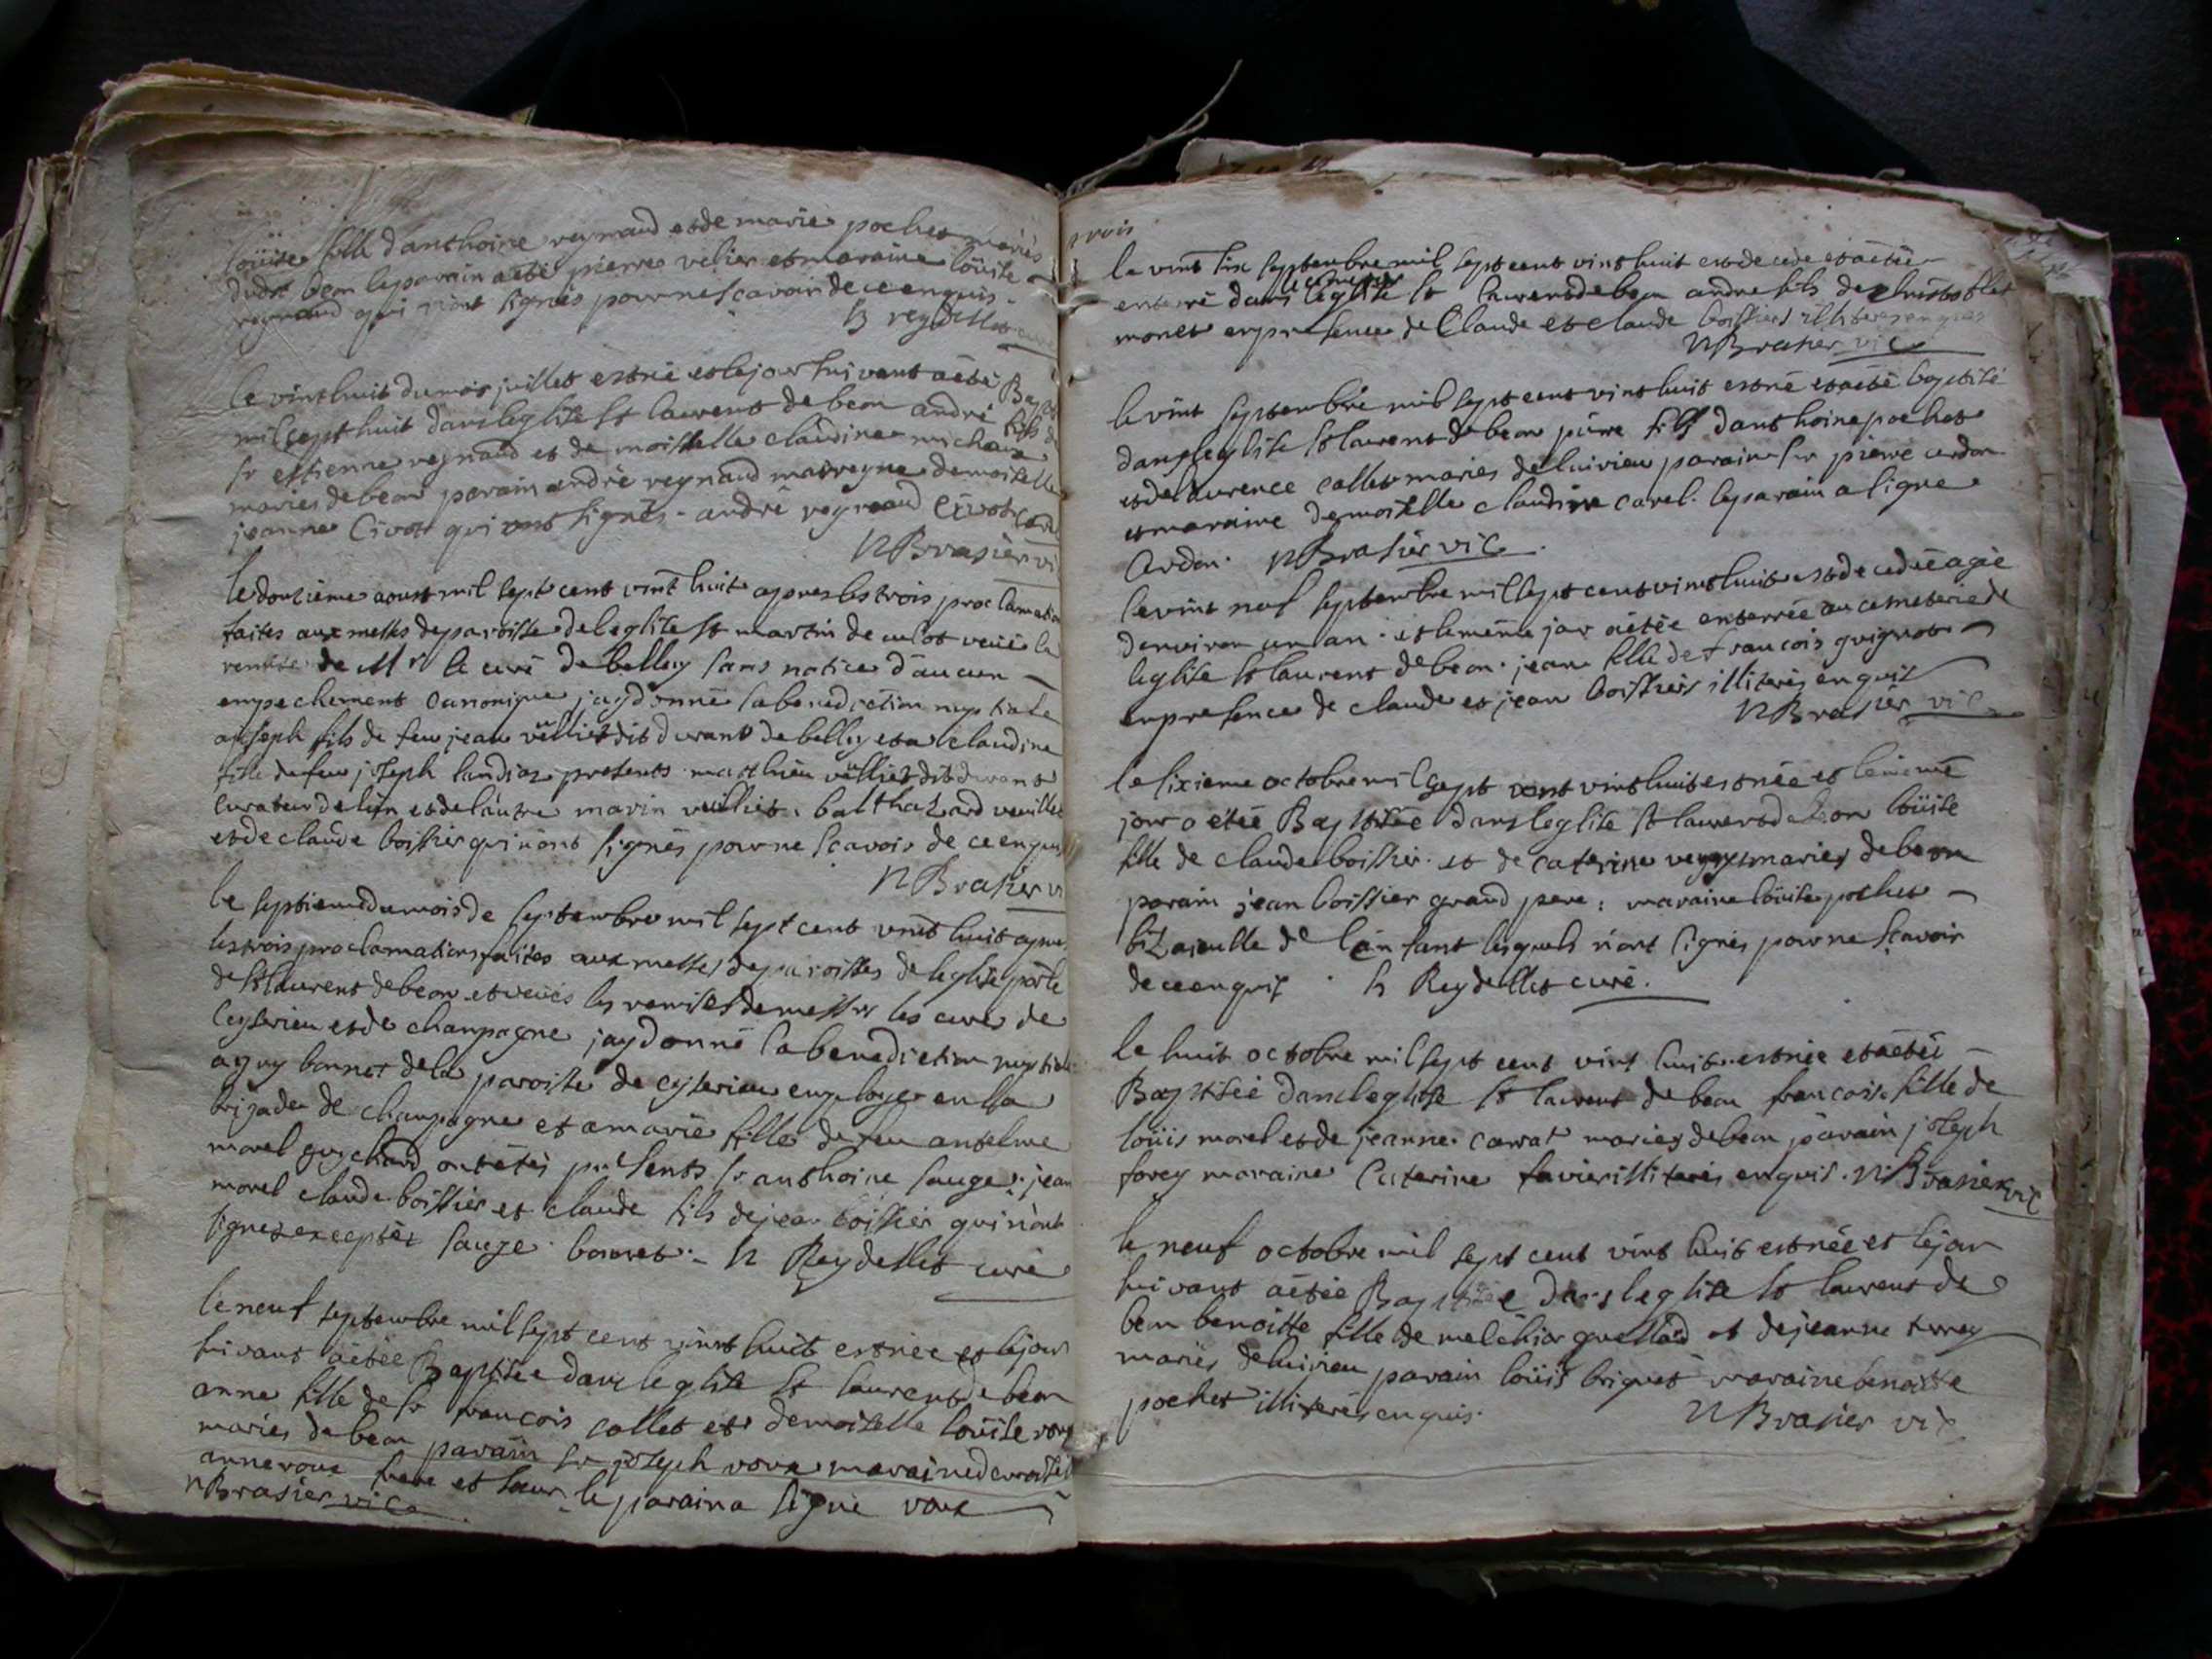 loüise fille danthoine reynaud et de marie pochet mariés
dudit beon le parain a eté pierre velier et maraine loüise
reynaud qui n'ont signés pour ne scavoir de ce enquis
h reydellet curé
le vint huit du mois juillet est né et le jour suivant a eté Bap
mil sept huit dans leglise st laurent de beon andré fils de
sr estienne reynaud et de moiselle claudine michaux
mariés de beon parain andré reynaud marregne demoiselle
jeanne Civot qui ont signés. andré reynaud Civot
N Brasier vi
le douzieme aoust mil sept cent vint huit apres les trois proclamation
faites aux messes de paroisse de leglise st martin de culot veüe la
remise de Mr le curé de belley sans notice d'aucun
empechement canonique jay donné la benediction nuptiale
a joseph fils de feu jean veüllet dit durand de belley et a claudine
fille de feu joseph landiaz presents matthieu veülliet dit durant
curateur de lun et de lautre marin veülliet, balthazard veuillet
et de claude boissier qui n'ont signés pour ne scavoir de ce enquis
N Brasier vi
le septieme du mois de septembre mil sept cent vint huit apres
les trois proclamations faites aux messes de paroisses de leglise par le
de st laurent de beon et veües les remises de messrs les curés de
Ceyserieu et de champagne jay donné la benediction nuptiale
a guy bonnet de la paroisse de ceyserieu employé en la
brigade de champagne et a marie fille de feu anselme
morel guychard ont etés presents sr anthoine sauge. jean
morel claude boissier et claude fils de jean boissier qui n'ont
signez exceptés sauge. bonnet. h Reydellet curé
le neuf septembre mil sept cent vint huit est née et le jour
suivant a etée Baptisée dans leglise st laurent de beon
anne fille de sr francois collet et demoiselle loüise roux
mariés de beon parain sr joseph roux maraine demoisel
anne roux frere et soeur le parain a signé roux
N Brasier vic
trois
le vint six septembre mil sept cent vint huit est decedé et a eté
enterré dans le cimetiere leglise st laurent de beon andre fils de christofle
monet en presence de Claude et claude boissiers illiteres enquis
N Brasier vic
le vint septembre mil sept cent vint huit est né et a eté baptisé
dans leglise st laurent de beon pierre fils danthoine pochet
et de laurence collet mariés de luirieu parain sr pierre cerdon
et maraine demoiselle claudine carel. le parain a signe
Cerdon. N Brasier vic
le vint neuf septembre mil sept cent vint huit est decedée agée
denviron un an. et le même jour a etée enterrée au cemetiere de
leglise st laurent de beon. jeane fille de francois guignot
en presence de claude et jean boissiers illiterés enquis
N Brasier vic
le sixieme octobre mil sept cent vint huit est née et le même
jour a etée Baptisée dans leglise st laurent de beon loüise
fille de claude boissier. et de caterine veyys mariés de beon
parain jean boissier grand pere: maraine loüise pochet
bizaieulle de l'enfant lesquels n'ont signés pour ne scavoir
de ce enquis. h Reydellet curé.
le huit octobre mil sept cent vint huit est née et a etée
Baptisée dans leglise st laurent de beon francoise fille de
loüis morel et de jeanne carrat mariés de beon parain joseph
forey maraine Caterine favier illiterés enquis. N Brasier vic
le neuf octobre mil sept cent vint huit est née et le jour
suivant a etée Baptisée dans leglise st laurent de
beon benoitte fille de melchior guellad et de jeanne
mariés de luirieu parain loüis briquet maraine benoitte
pochet illiterés enquis.
N Brasier vic